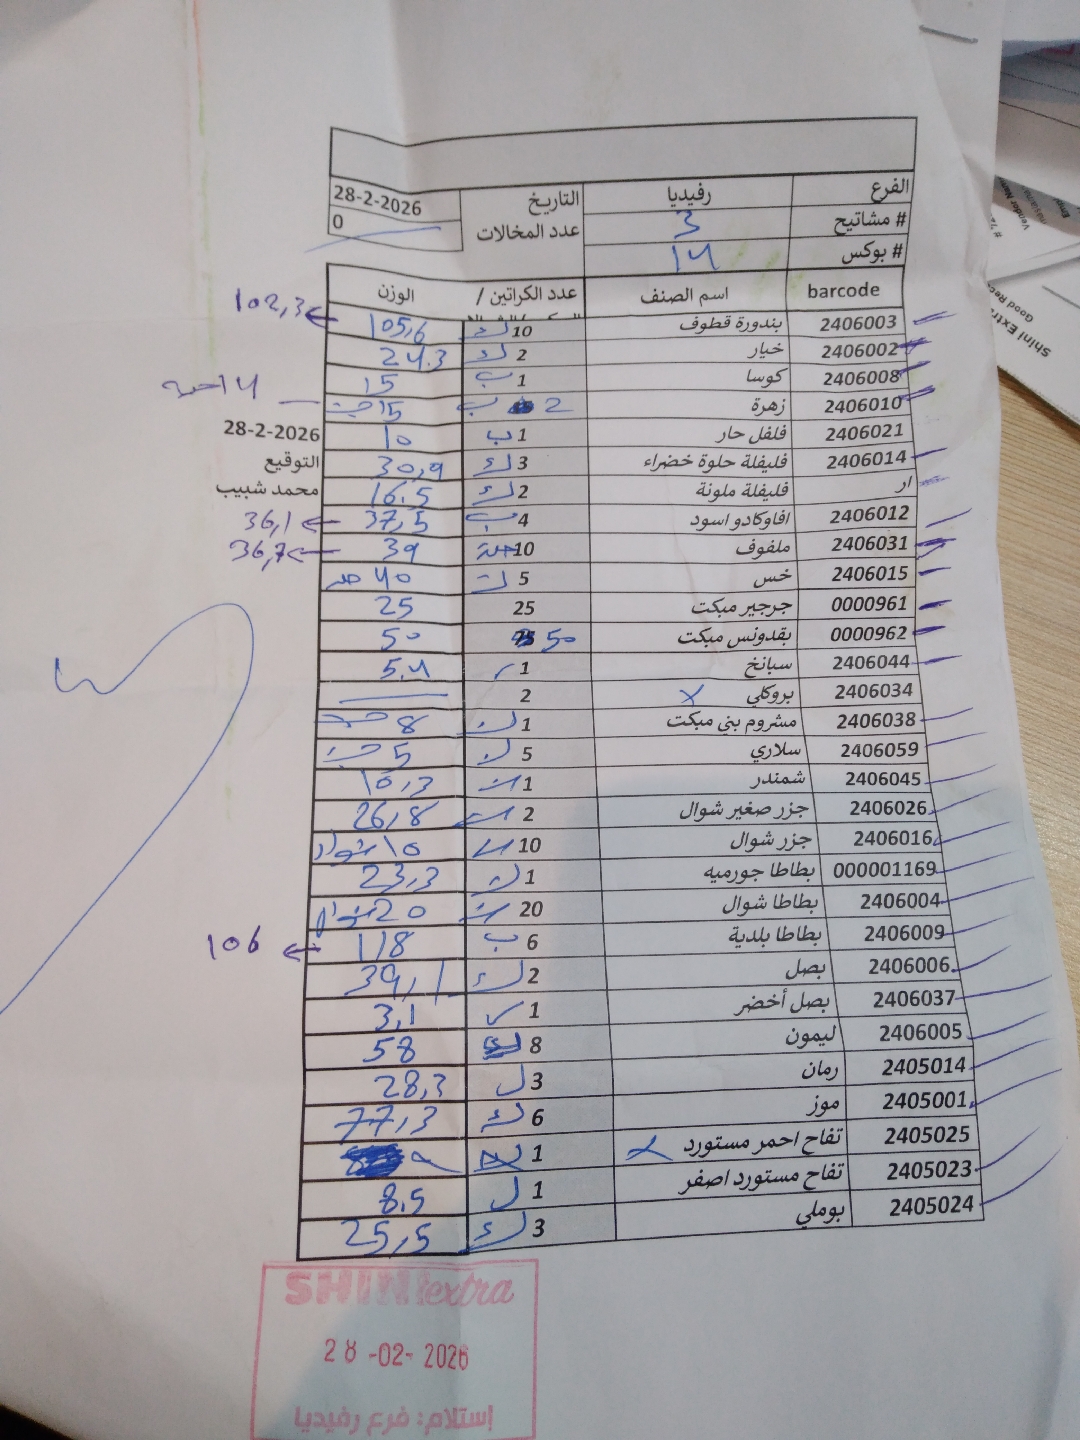 الفرع رفيديا التاريخ 28-2-2026
# مشاتيح 3 عدد المخالات 0
# بوكس 14
barcode اسم الصنف عدد الكراتين / الوزن
2406003 بندورة قطوف 10 ك 105,6 102,3
2406002 خيار 2 ك 24.3
2406008 كوسا 1 ب 15
2406010 زهرة 2 ب 15 حبة 14 حبة
2406021 فلفل حار 1 ب 10
28-2-2026
2406014 فليفلة حلوة خضراء 3 ك 30,9
التوقيع
ار فليفلة ملونة 2 ك 16.5
محمد شبيب
2406012 افاوكادو اسود 4 ب 37,5 36,1
2406031 ملفوف 10 39 36,7
2406015 خس 5 40
0000961 جرجير مبكت 25 25
0000962 بقدونس مبكت 50 50
2406044 سبانخ 1 5.4
2406034 بروكلي x 2
2406038 مشروم بني مبكت 1 8
2406059 سلاري 5 5
2406045 شمندر 1 10,3
2406026 جزر صغير شوال 2 26,8
2406016 جزر شوال 10 10 شوال
000001169 بطاطا جورميه 1 23,3
2406004 بطاطا شوال 20 20 شوال
2406009 بطاطا بلدية 6 ب 118 106
2406006 بصل 2 ك 39,1
2406037 بصل أخضر 1 3,1
2406005 ليمون 8 58
2405014 رمان 3 28,3
2405001 موز 6 ك 77,3
2405025 تفاح احمر مستورد x 1
2405023 تفاح مستورد اصفر 1 8.5
2405024 بوملي 3 ك 25,5
SHINI extra
28 -02- 2026
إستلام: فرع رفيديا
# 24
Vendor Name
Shini Extra
Good Rec